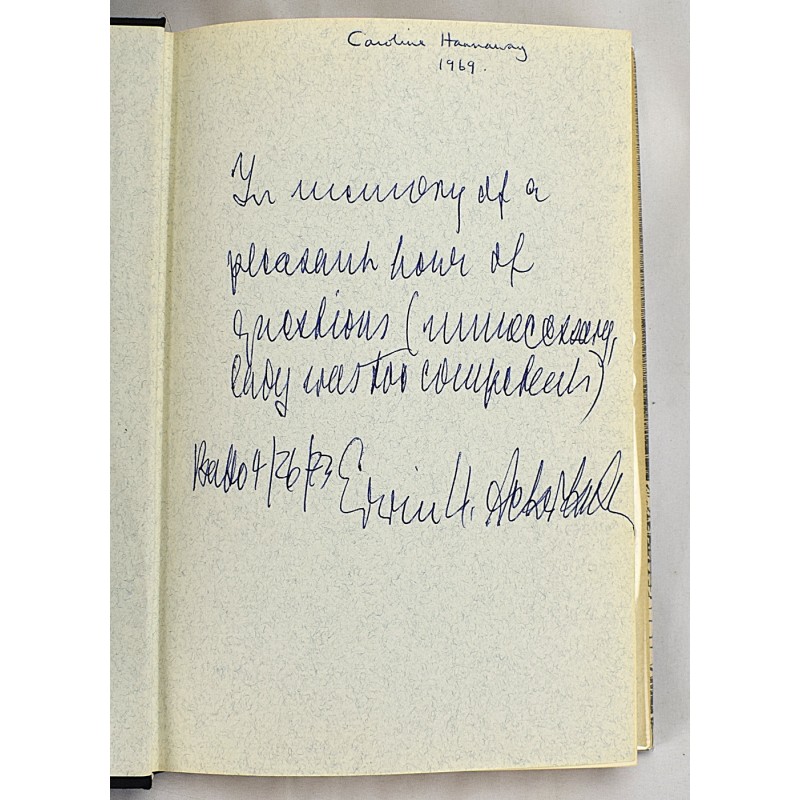 Caroline Hannaway
1969.
In memory of a
pleasant hour of
questions (unnecessary,
lady was too competent)
Balto 4/26/73 Erwin H. Ackerknecht